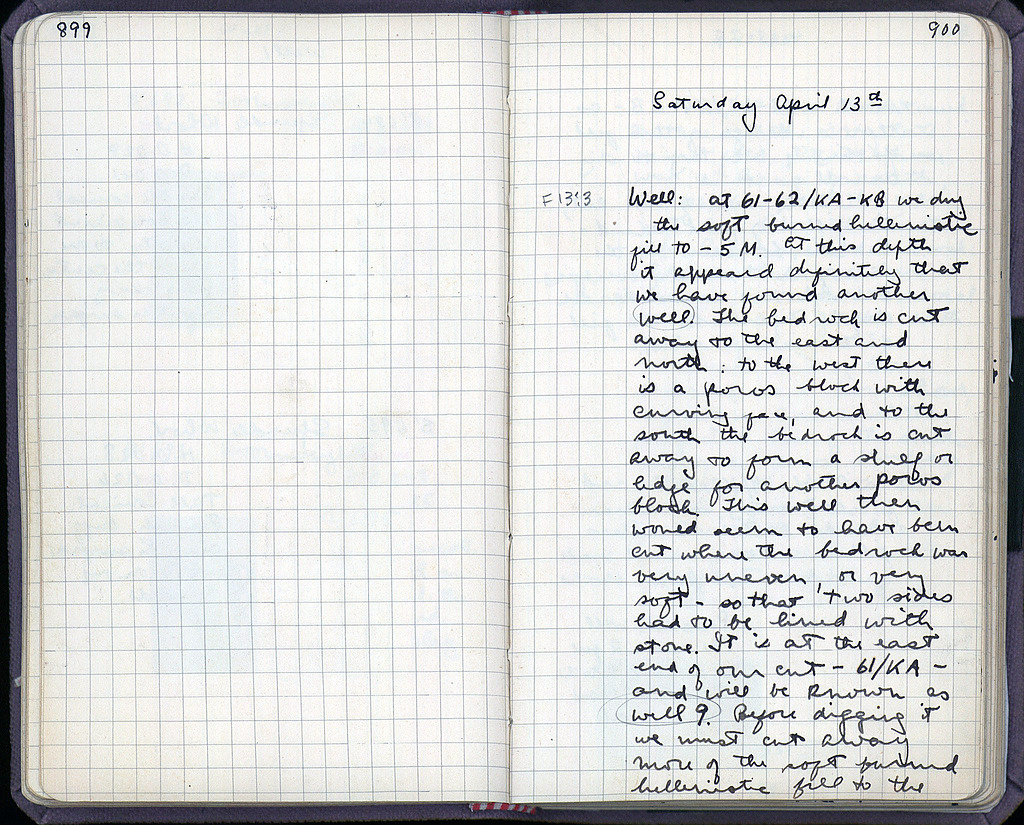 899
900
Saturday April 13th
F 13:3
Well: at 61-62/KA-KB we dug
the soft burned hellenistic
fill to - 5 M. At this depth
it appeared definitely that
we have found another
well. The bedrock is cut
away to the east and
north: to the west there
is a poros block with
curving face, and to the
south the bedrock is cut
away to form a shelf or
ledge for another poros
block. This well then
would seem to have been
cut where the bedrock was
very uneven, or very
soft - so that two sides
had to be lined with
stone. It is at the east
end of our cut - 61/KA -
and will be known as
well 9. Before digging it
we must cut away
more of the soft burned
hellenistic fill to the